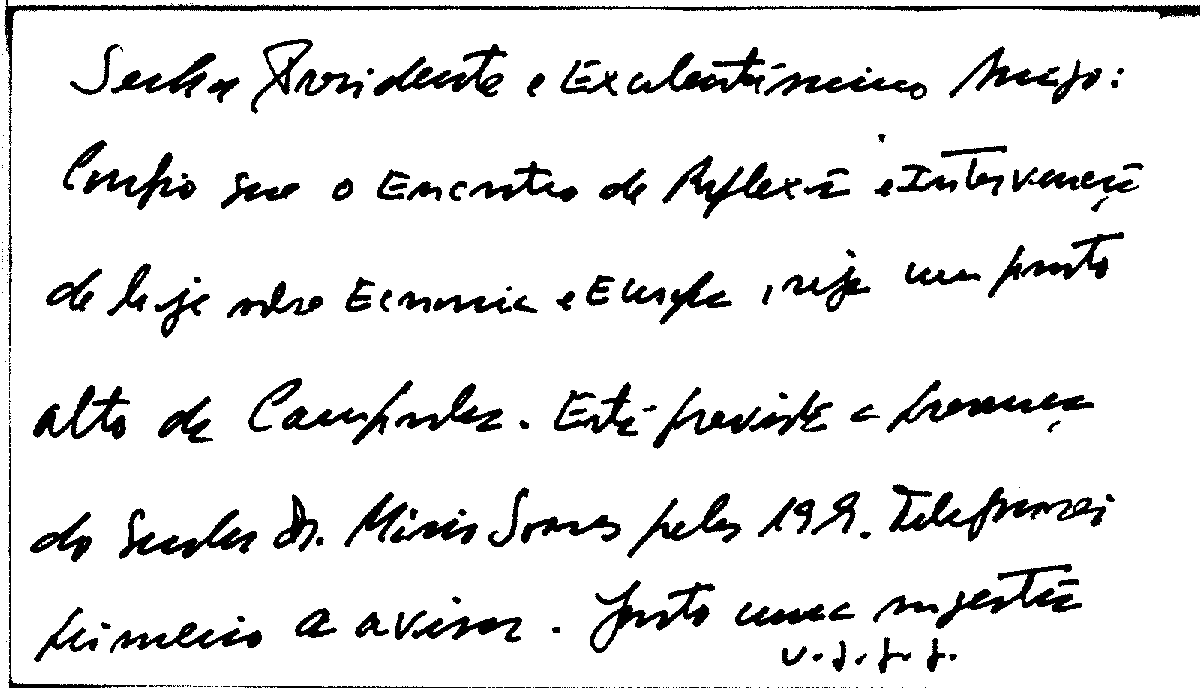 Senhor Presidente e Excelentíssimo Amigo:
Confio que o Encontro de Reflexão e Intervenção
de hoje sobre Economia e Europa, seja um ponto
alto da Campanha. Está prevista a presença
do Senhor Dr. Mário Soares pelas 19 h. Telefonarei
primeiro a avisar. Junto uma sugestão
v. s. f. f.